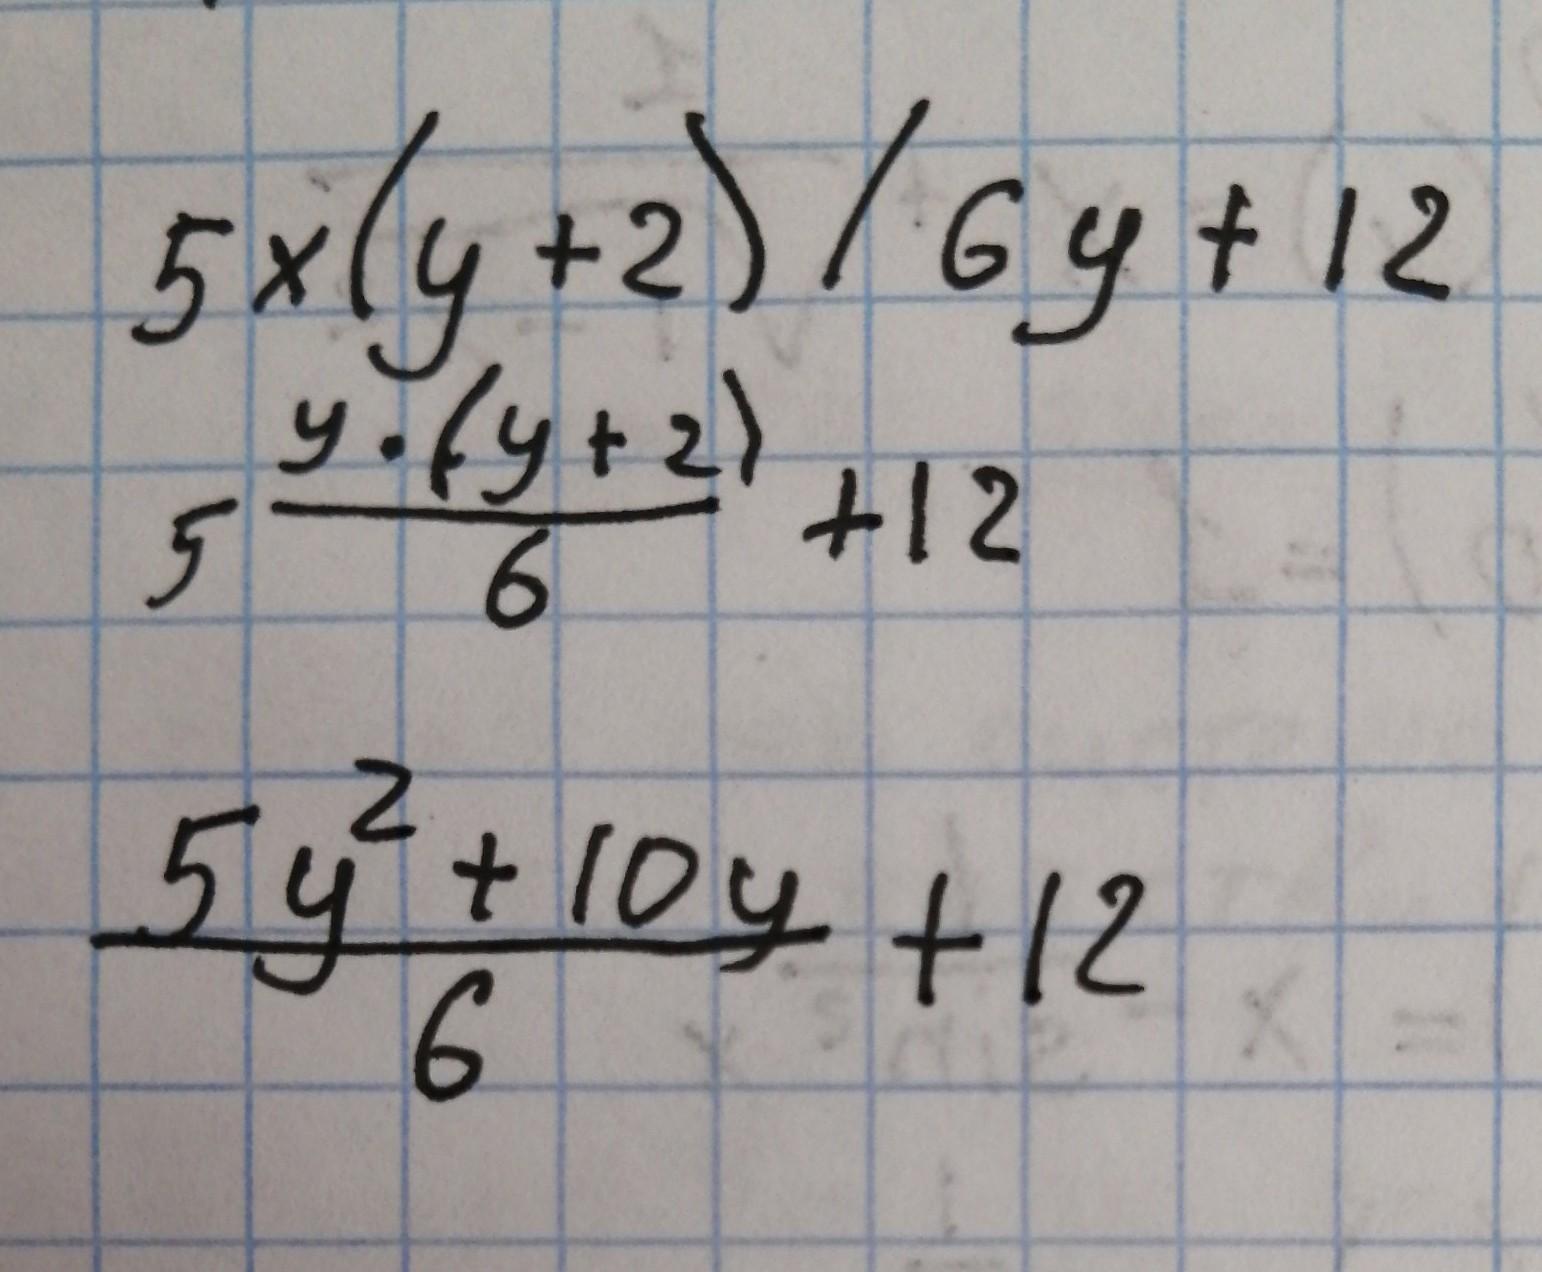 5x(y+2)/6y+12
5 y·(y+2)/6 +12
5y²+10y/6 +12